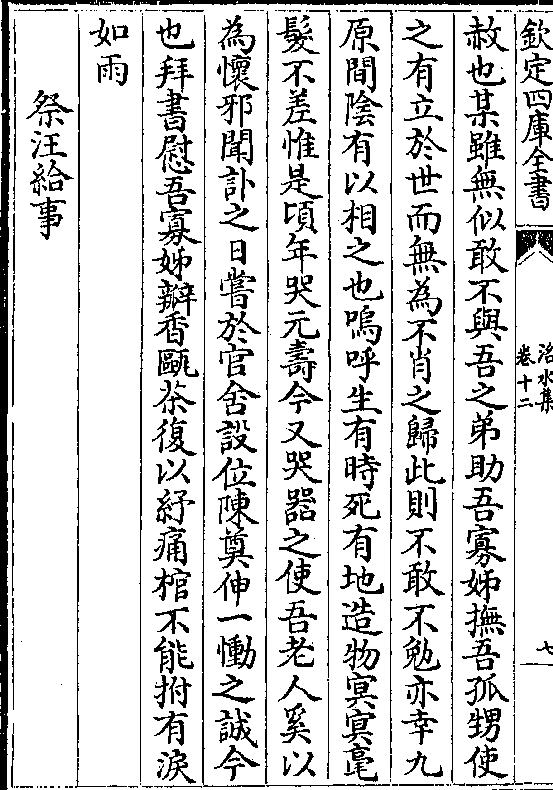 欽定四庫全書
洺水集
卷十二
七
赦也某雖無似敢不與吾之弟助吾寡姊撫吾孤甥使
之有立於世而無為不肖之歸此則不敢不勉亦幸九
原間陰有以相之也嗚呼生有時死有地造物冥冥毫
髮不差惟是頃年哭元壽今又哭器之使吾老人奚以
為懷邪聞訃之日嘗於官舍設位陳奠伸一慟之誠今
也拜書慰吾寡姊瓣香甌茶復以紓痛棺不能拊有淚
如雨
祭汪給事